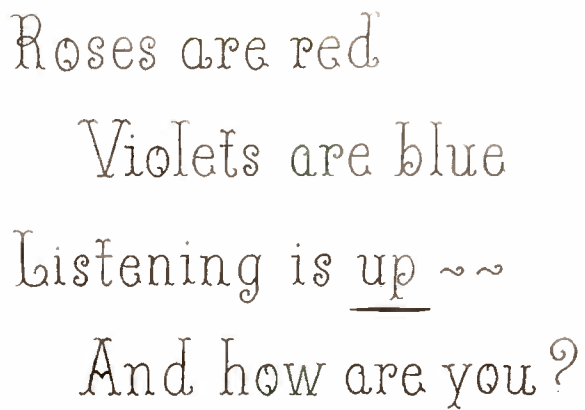 Roses are red
Violets are blue
Listening is up ~~
And how are you?